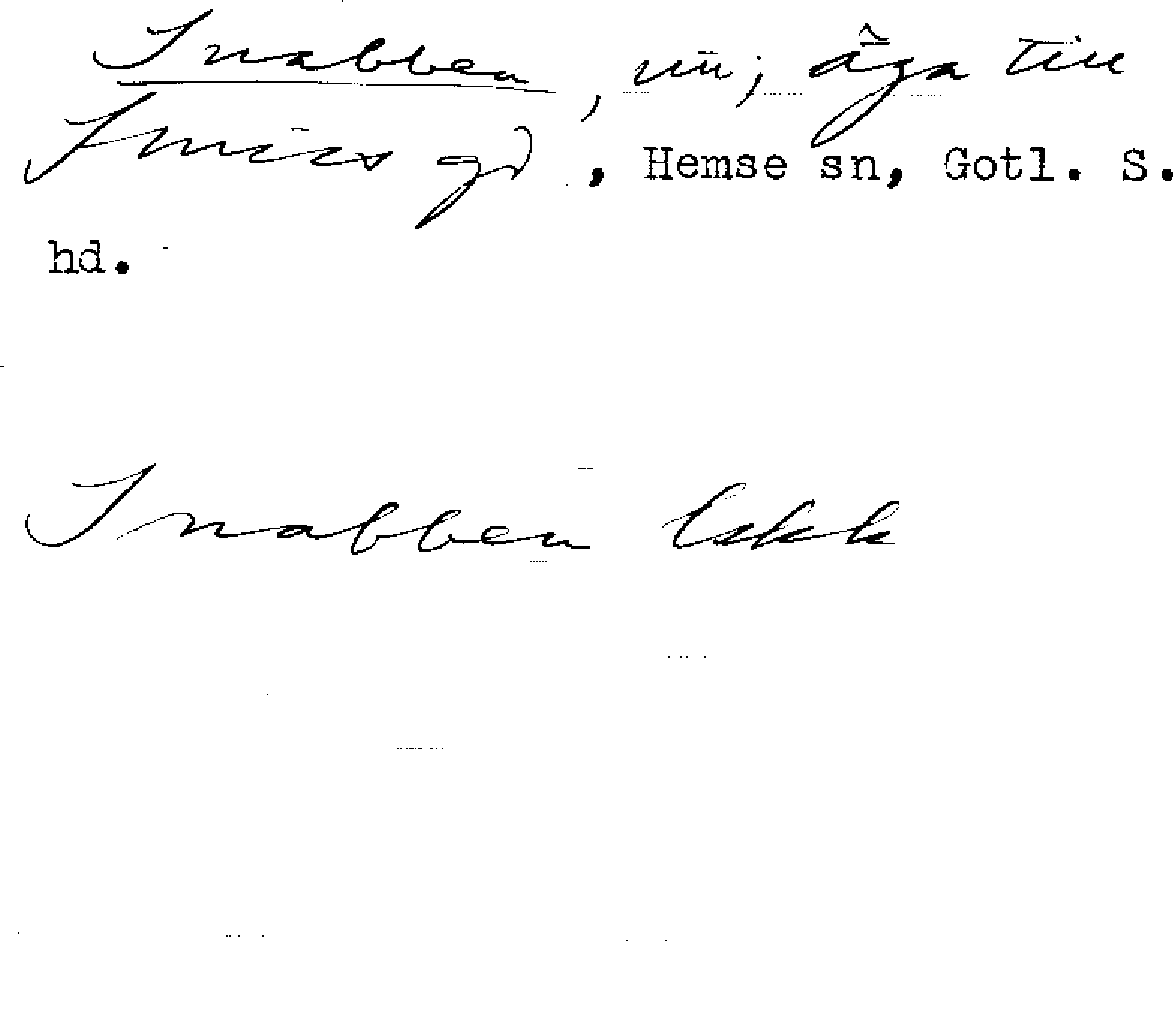 Snabben, åga till
Smiss gd, Hemse sn, Gotl. S.
hd.
Snabben Lskk